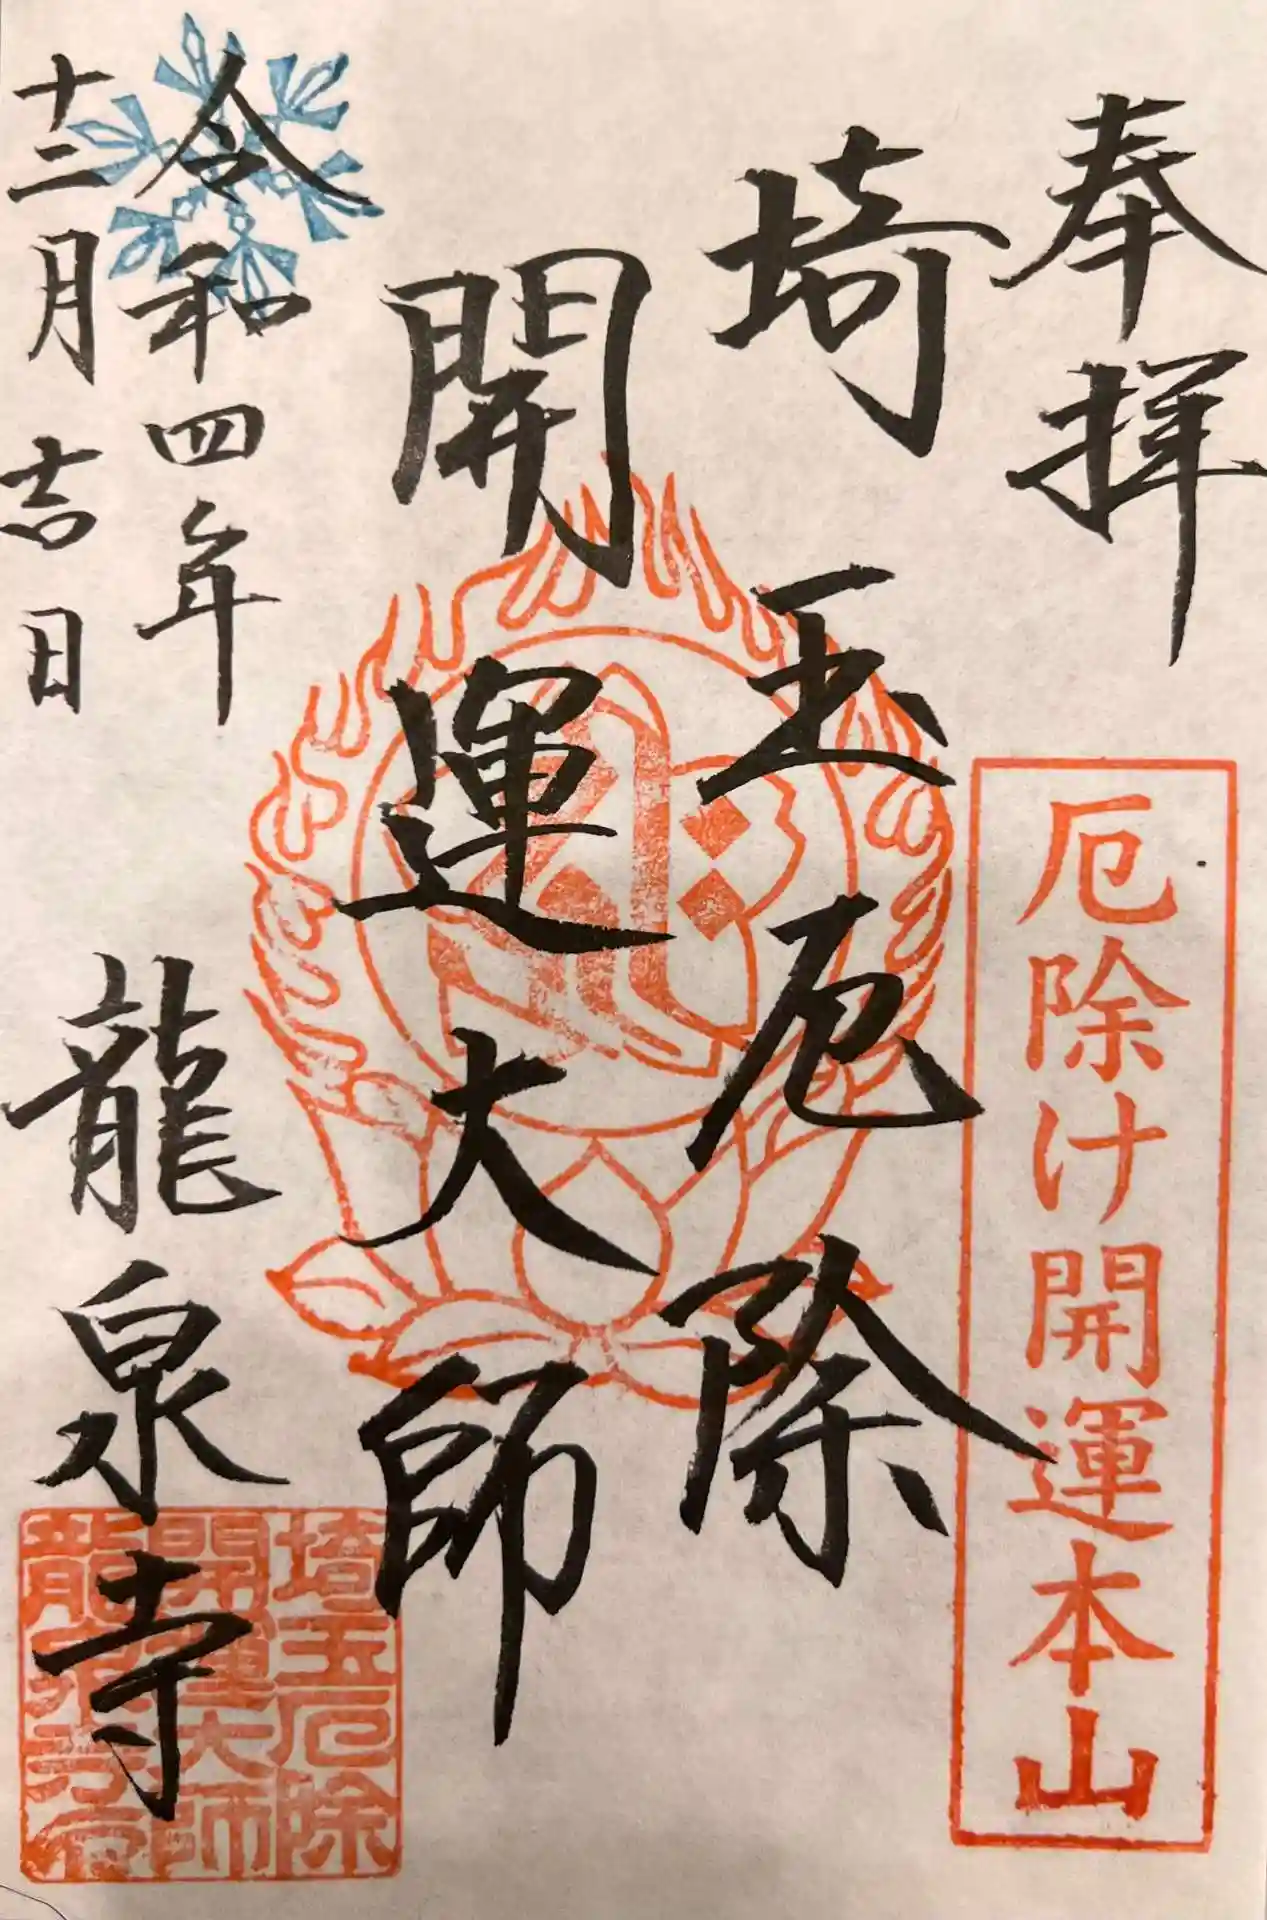 奉拝
厄除け開運本山
埼玉厄除
開運大師
令和四年
十二月吉日
龍泉寺
埼玉厄除
開運大師
龍泉寺